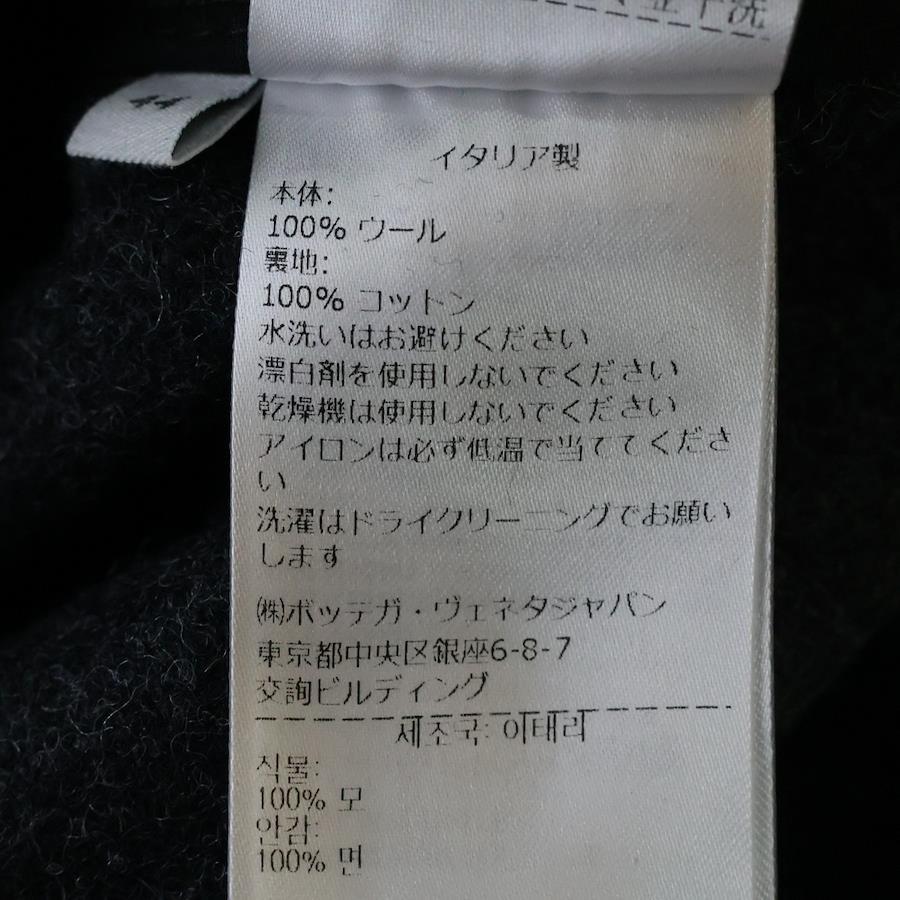 干洗
44
イタリア製
本体:
100% ウール
裏地:
100% コットン
水洗いはお避けください
漂白剤を使用しないでください
乾燥機は使用しないでください
アイロンは必ず低温で当ててくださ
い
洗濯はドライクリーニングでお願い
します
㈱ボッテガ・ヴェネタジャパン
東京都中央区銀座6-8-7
交詢ビルディング
제조국: 이태리
직물:
100% 모
안감:
100% 면